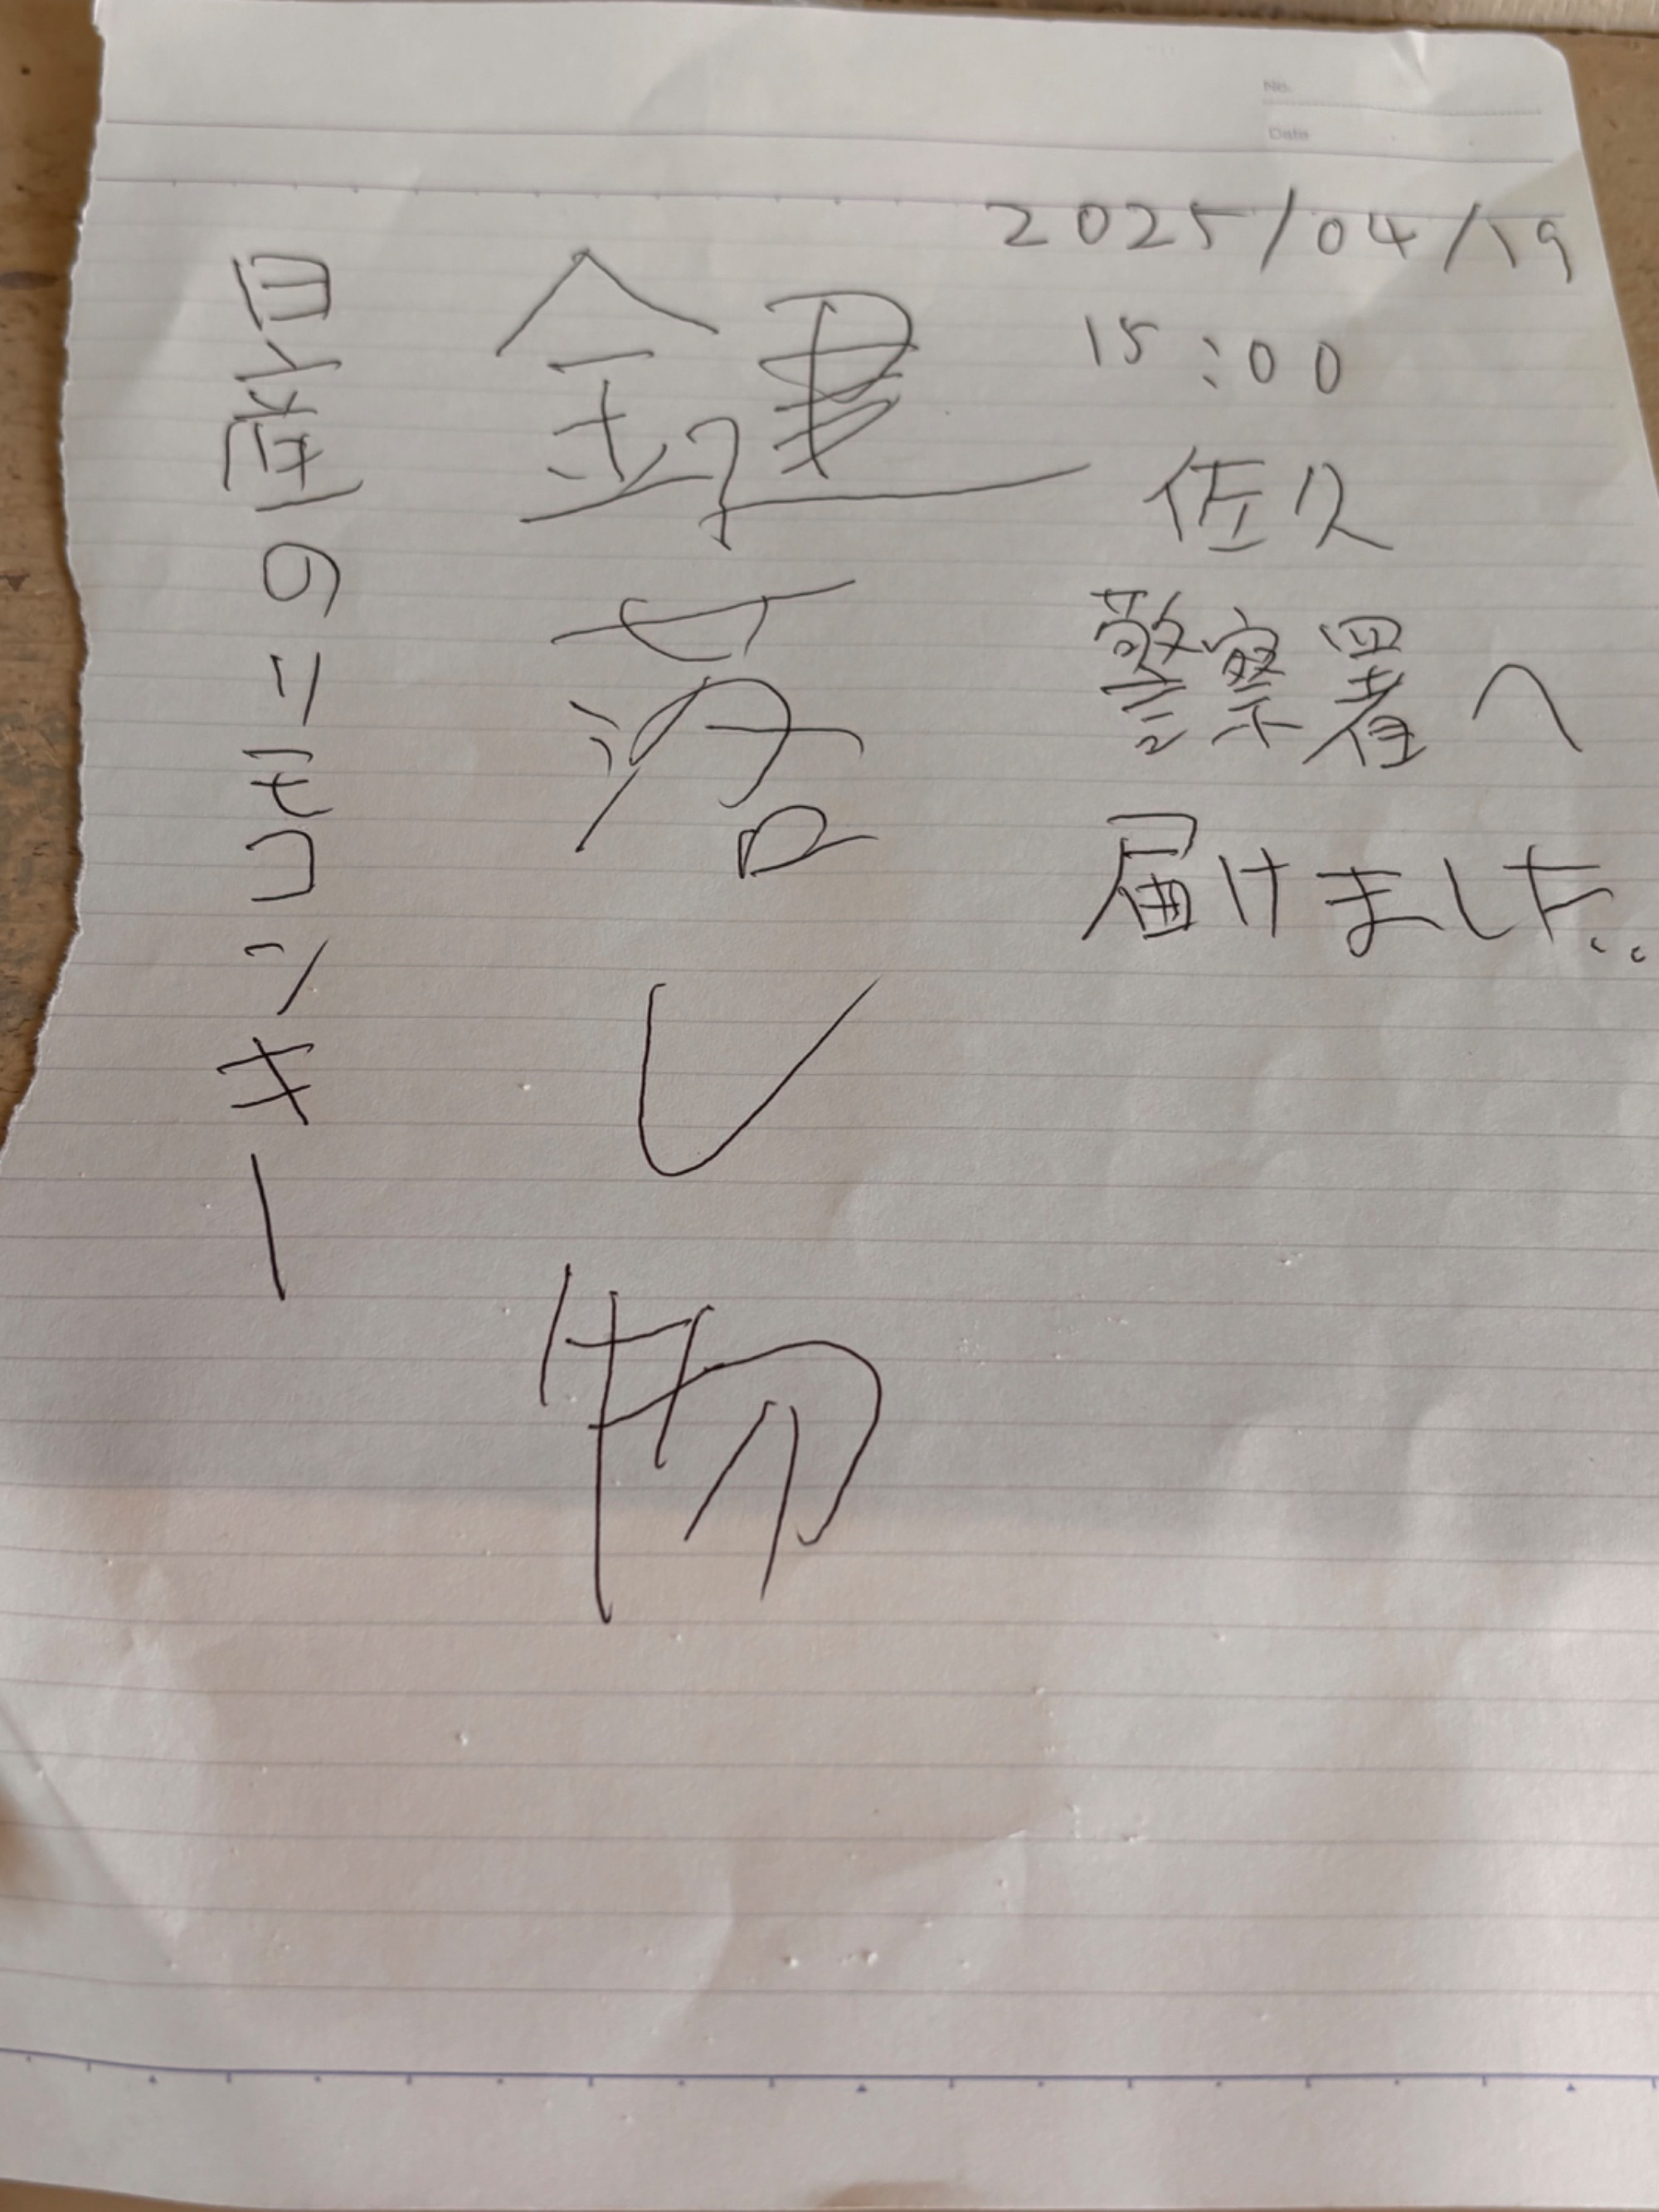 No.
Date
2025/04/19
15:00
佐久
警察署へ
届けました。
鍵落し物
日産のリモコンキー